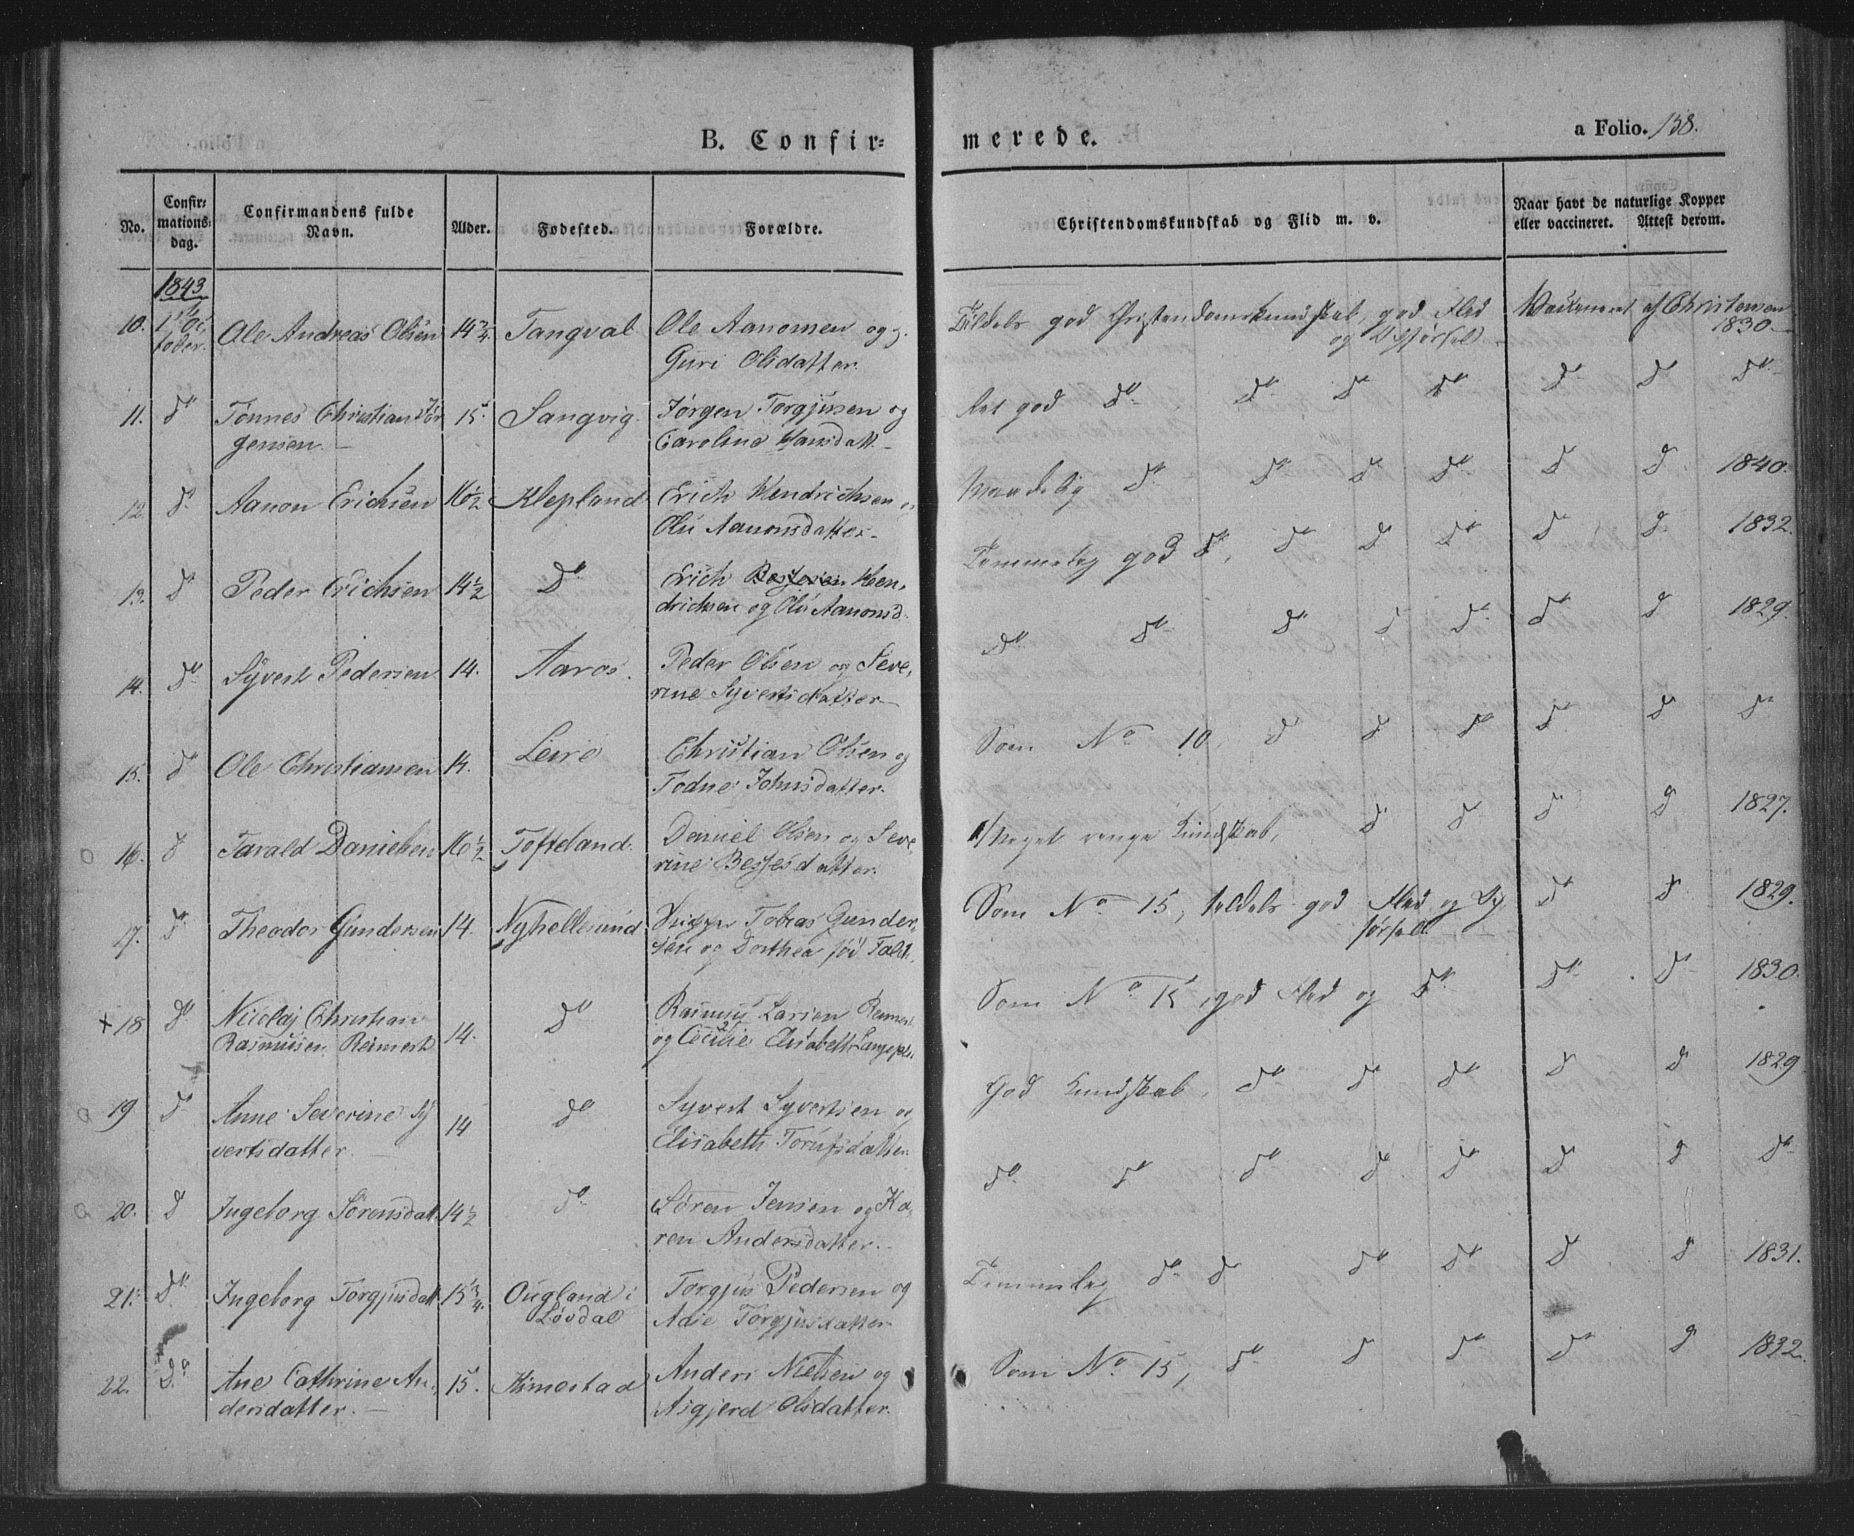 B. Confir-
merede.
a Folio. 158.
No.
Confir-
mations-
dag.
Confirmandens fulde
Navn.
Alder.
Fødested.
Forældre.
Christendomskundskab og Flid m. v.
Naar havt de naturlige Kopper
eller vaccineret. Attest derom.
1843
10. 1ste Oc
tober. Ole Andreas Olsen 14 3/4 Tangval Ole Aanonsen og
Guri Olsdatter.
Tildels god Christendomskundskab, god Flid
og Opførsel.
Vaccineret af Christensen
1830
11. do Tønnes Christian Jør
gensen. 15. Sangvig. Jørgen Torgjusen og
Caroline Hansdatt.
Ret god do do do do do d do
12. do Aanon Erichsen 16 1/2 Klepland Erich Hendrichsen o
Olu Aanonsdatter.
Maadelig do do d do d d. 1840.
13. do Peder Erichsen 14 1/2 Do Erich Hen-
drichsen og Olu Aanonsd.
Temmelig god do, do d do d d. 1832.
14. do Syvert Pedersen 14. Aaros. Peder Olsen og Seve-
rine Syvertsdatter
do do do d do do d 1829.
15. do Ole Christiansen 14. Leire Christian Olsen og
Todne Johnsdatter.
Som No 10, d d do d d do
16. d Tarald Danielsen 16 1/2 Tofteland. Daniel Olsen og Seve
rine Bessesdatter.
Meget ringe Kundskab, d d d d 1827.
17. do Theodor Gundersen 14. Nyhellesund Tobias Gunder-
sen og Dorthea fød Falch.
Som No 15, tildels god Flid og Op
førsel. do d 1829.
+ 18 do Nicolaj Christian
Rasmusen Reimert 14. do Rasmus Larsen Reimert
og Cecilie Elisabeth
Som No 15, god Flid og do do do 1830.
19 do Anne Severine Sy
vertsdatter. 14 do Syvert Syvertsen og
Elisabeth
God Kundskab, do do do d d 1829
20. d Ingeborg Sørensdatt. 14 1/2 do Søren Jensen og Ka-
ren Andersdatter.
do do do d do do d do
21. do Ingeborg Torgjusdatt. 13 3/4. Ougland i
Løvdal Torgjus Pedersen og
Adse Torgjusdatter
Temmelig do d do do d d 1831.
22. Do Ane Cathrine An-
dersdatter. 15. Kimestad Anders Nielsen og
Asgjerd Olsdatter.
Som No 15, do d do do d 1832.